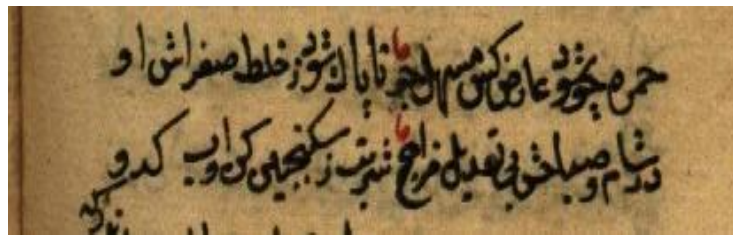 حمره چو شود عارض کس مسهل جو تا پاک شود ز خلط صفراش او
در شام و صباحش پی تعدیل مزاج شربت ز سکنجبین کن و آب کدو